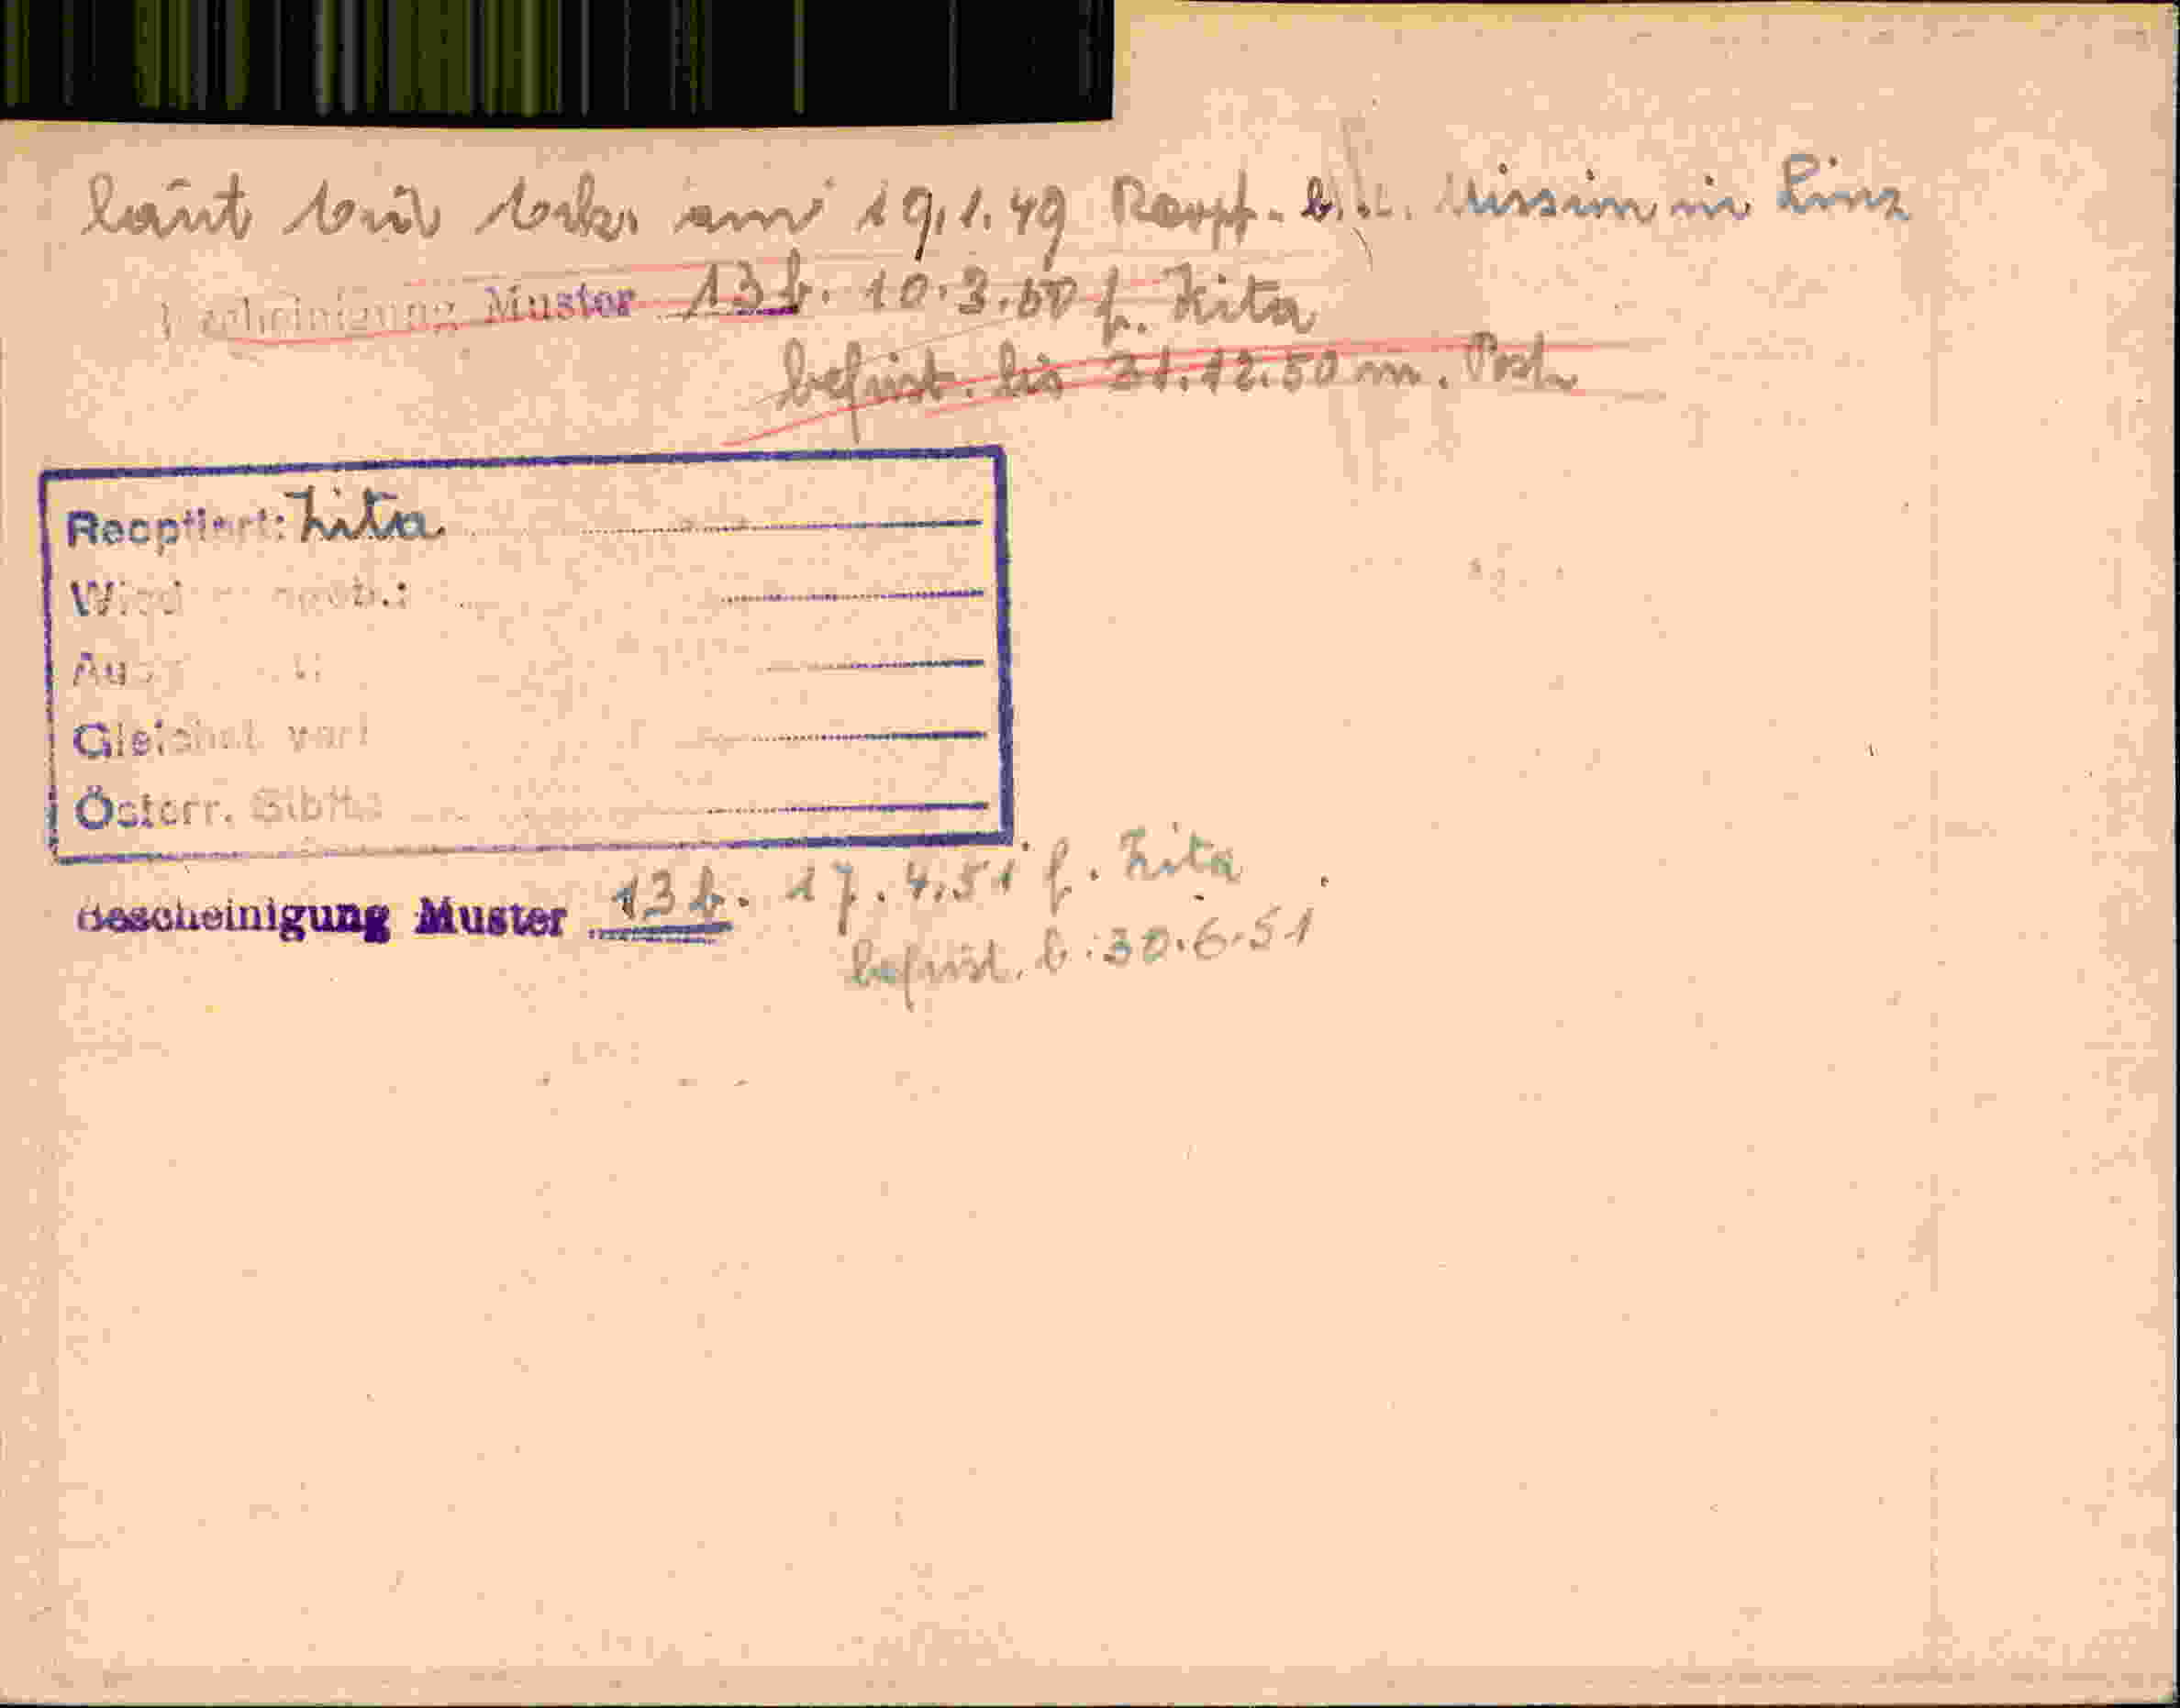 laut am 19.1.49 Reopt. b. Mission in Linz
Bescheinigung Muster 13 b. 10.3.50 f. Zita
befrist. bis 31.12.50 m. Post
Reoptiert: Zita
Gleichst.
Österr.
Bescheinigung Muster 13 b. 17.4.51 f. Zita
befrist. b. 30.6.51